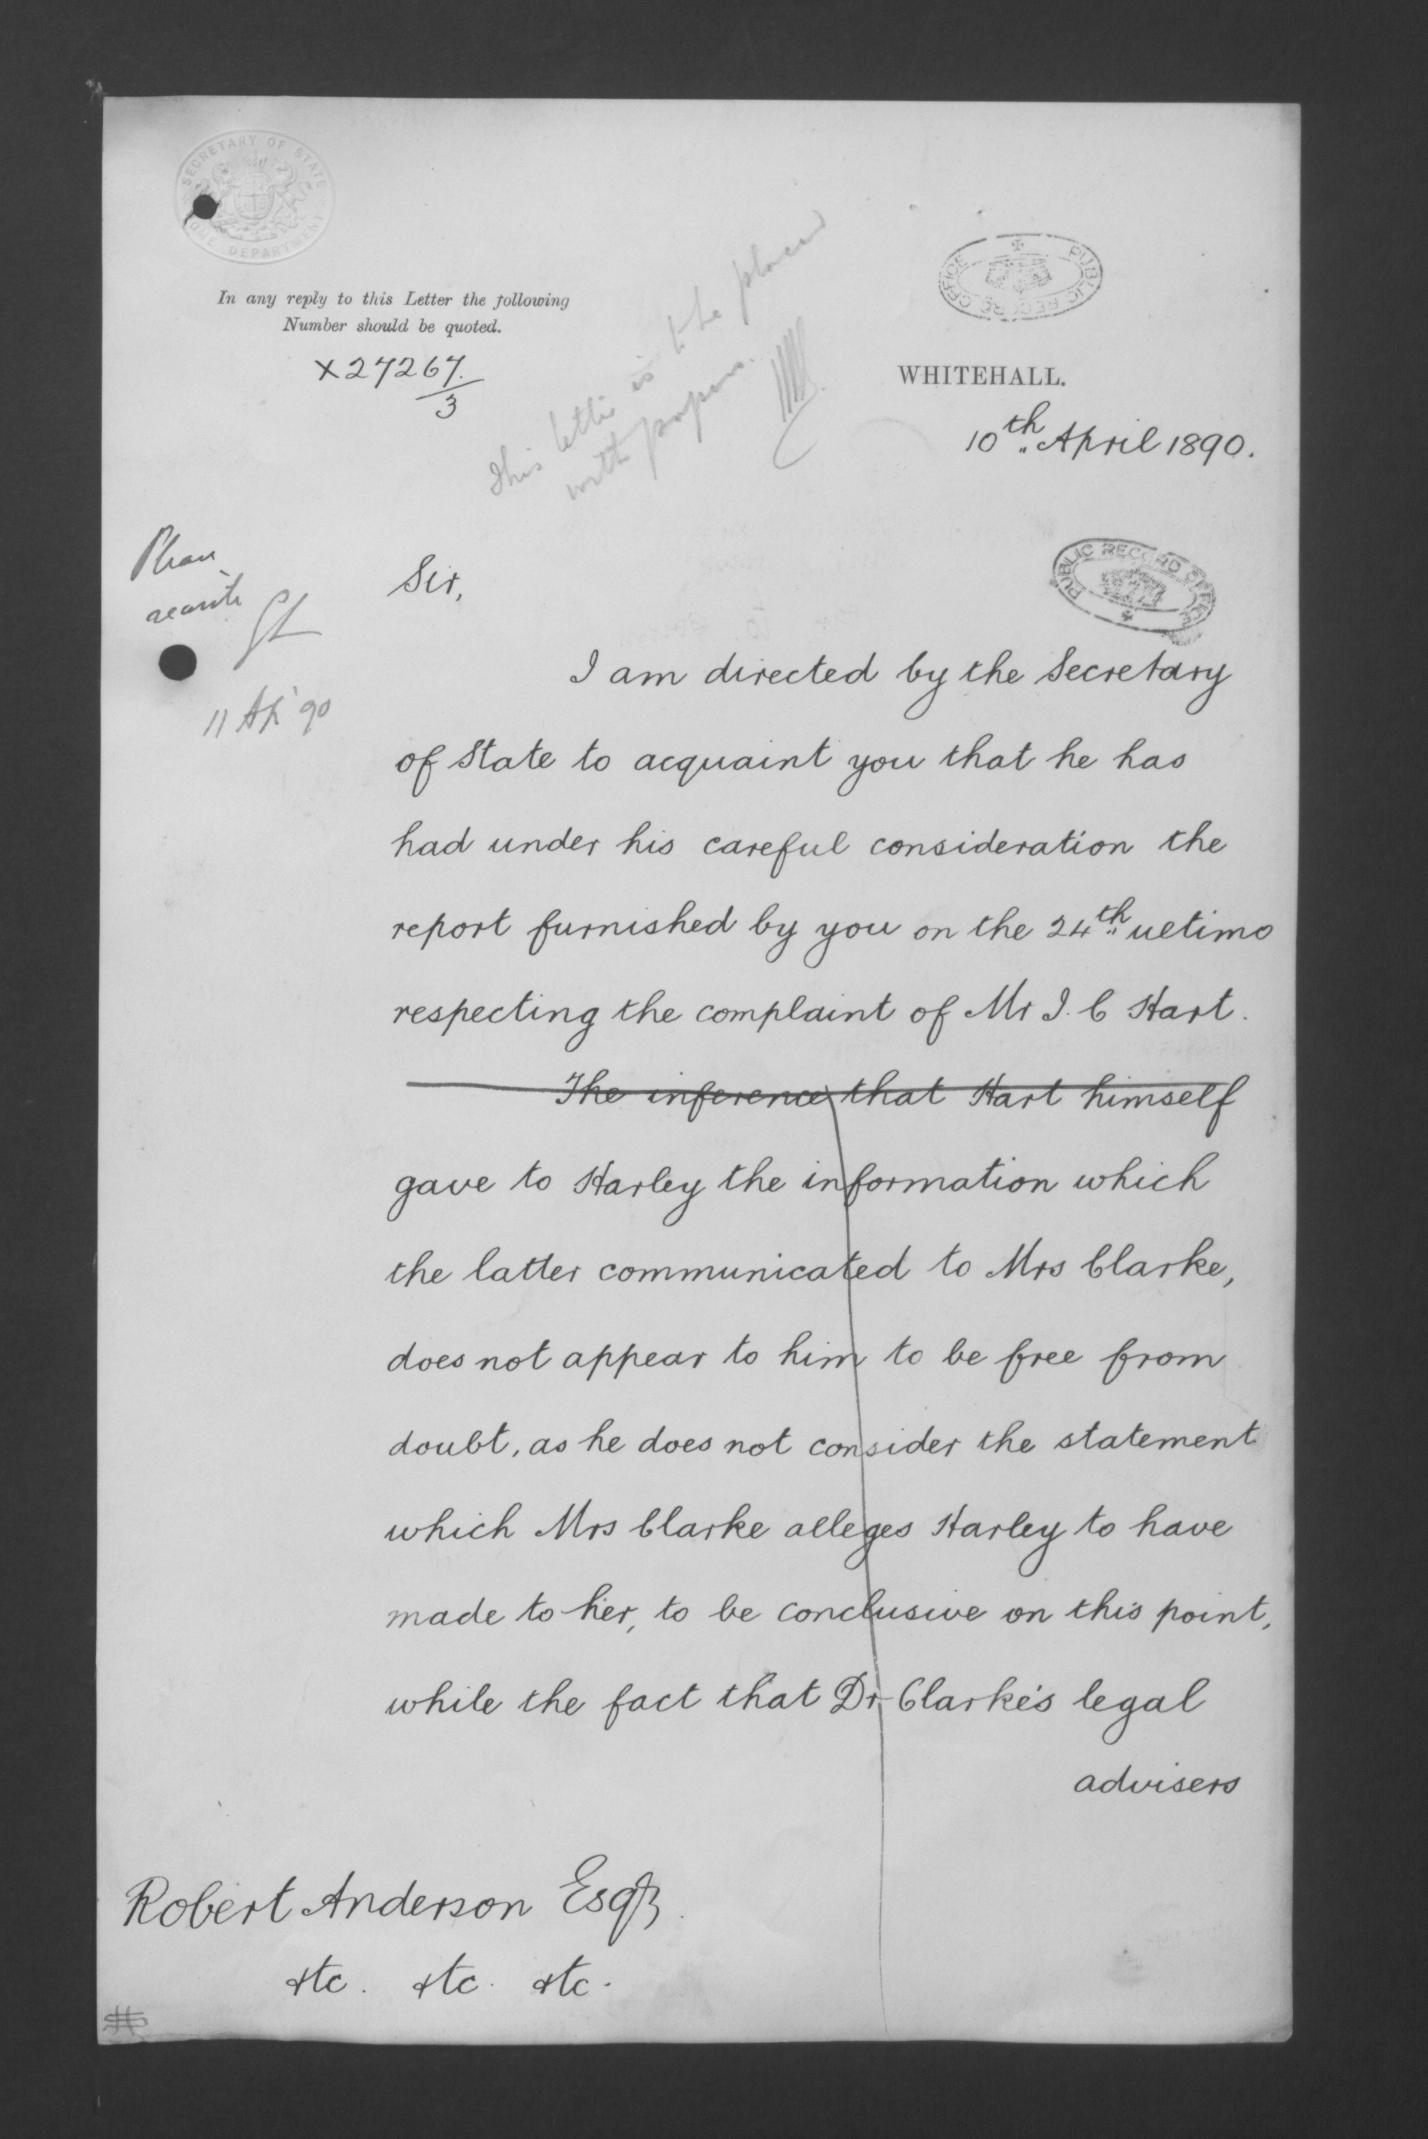 SECRETARY OF STATE
HOME DEPARTMENT
PUBLIC RECORD OFFICE
In any reply to this Letter the following
Number should be quoted.
X27267.
3
This letter is to be placed
with papers.
WHITEHALL.
10th April 1890.
PUBLIC RECORD OFFICE
Please
rewrite
11 Ap '90
Sir,
I am directed by the Secretary
of State to acquaint you that he has
had under his careful consideration the
report furnished by you on the 24th ultimo
respecting the complaint of Mr I. C Hart.
The inference that Hart himself
gave to Harley the information which
the latter communicated to Mrs Clarke,
does not appear to him to be free from
doubt, as he does not consider the statement
which Mrs Clarke alleges Harley to have
made to her, to be conclusive on this point,
while the fact that Dr Clarke's legal
advisers
Robert Anderson Esqr
&c. &c. &c.